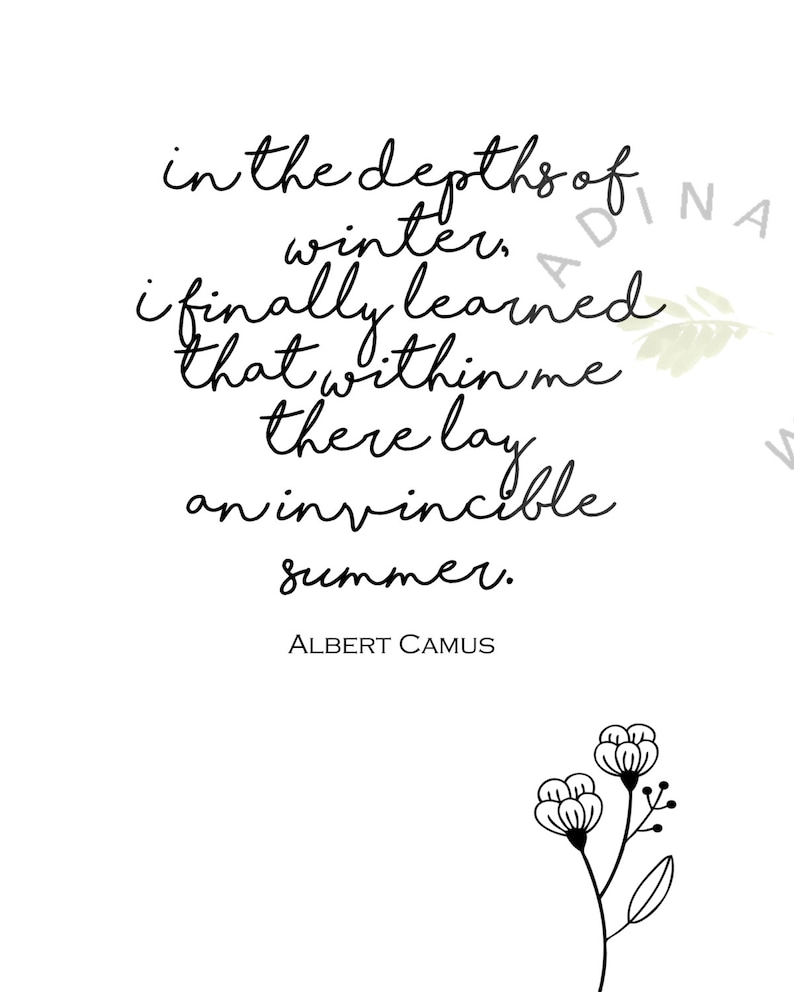 in the depths of
winter,
i finally learned
that within me
there lay
an invincible
summer.
ALBERT CAMUS
ADINA